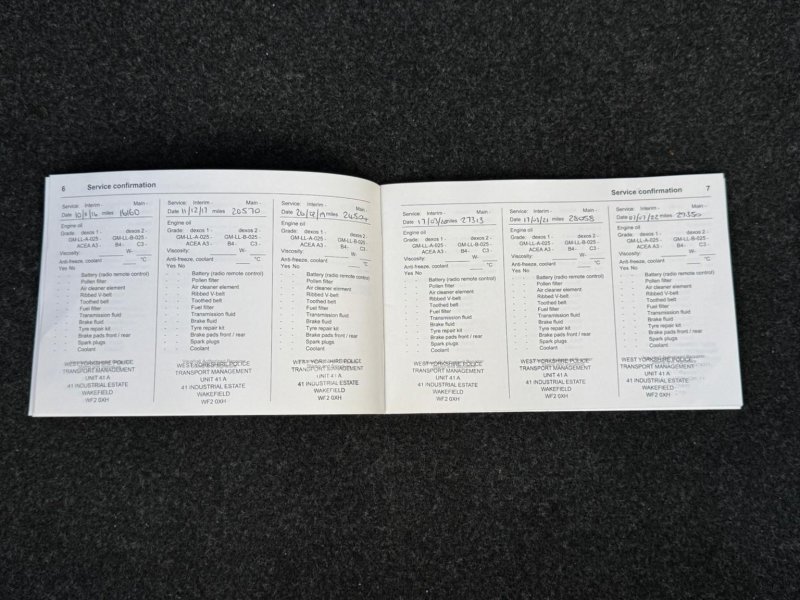 6 Service confirmation
Service: Interim - Main -
Date miles
Engine oil
Grade: dexos 1 - dexos 2 -
GM-LL-A-025 - GM-LL-B-025 -
ACEA A3 - B4- C3 -
Viscosity: W-
Anti-freeze, coolant °C
Yes No
Battery (radio remote control)
Pollen filter
Air cleaner element
Ribbed V-belt
Toothed belt
Fuel filter
Transmission fluid
Brake fluid
Tyre repair kit
Brake pads front / rear
Spark plugs
Coolant
WEST YORKSHIRE POLICE
TRANSPORT MANAGEMENT
UNIT 41 A
41 INDUSTRIAL ESTATE
WAKEFIELD
WF2 0XH
Service: Interim - Main -
Date 11/12/17 miles 20570
Engine oil
Grade: dexos 1 - dexos 2 -
GM-LL-A-025 - GM-LL-B-025 -
ACEA A3 - B4- C3 -
Viscosity: W-
Anti-freeze, coolant °C
Yes No
Battery (radio remote control)
Pollen filter
Air cleaner element
Ribbed V-belt
Toothed belt
Fuel filter
Transmission fluid
Brake fluid
Tyre repair kit
Brake pads front / rear
Spark plugs
Coolant
WEST YORKSHIRE POLICE
TRANSPORT MANAGEMENT
UNIT 41 A
41 INDUSTRIAL ESTATE
WAKEFIELD
WF2 0XH
Service: Interim - Main -
Date miles
Engine oil
Grade: dexos 1 - dexos 2 -
GM-LL-A-025 - GM-LL-B-025 -
ACEA A3 - B4- C3 -
Viscosity: W-
Anti-freeze, coolant °C
Yes No
Battery (radio remote control)
Pollen filter
Air cleaner element
Ribbed V-belt
Toothed belt
Fuel filter
Transmission fluid
Brake fluid
Tyre repair kit
Brake pads front / rear
Spark plugs
Coolant
WEST YORKSHIRE POLICE
TRANSPORT MANAGEMENT
UNIT 41 A
41 INDUSTRIAL ESTATE
WAKEFIELD
WF2 0XH
Service confirmation 7
Service: Interim - Main -
Date 17/03/20 miles 27313
Engine oil
Grade: dexos 1 - dexos 2 -
GM-LL-A-025 - GM-LL-B-025 -
ACEA A3 - B4- C3 -
Viscosity: W-
Anti-freeze, coolant °C
Yes No
Battery (radio remote control)
Pollen filter
Air cleaner element
Ribbed V-belt
Toothed belt
Fuel filter
Transmission fluid
Brake fluid
Tyre repair kit
Brake pads front / rear
Spark plugs
Coolant
WEST YORKSHIRE POLICE
TRANSPORT MANAGEMENT
UNIT 41 A
41 INDUSTRIAL ESTATE
WAKEFIELD
WF2 0XH
Service: Interim - Main -
Date 17/03/21 miles 28058
Engine oil
Grade: dexos 1 - dexos 2 -
GM-LL-A-025 - GM-LL-B-025 -
ACEA A3 - B4- C3 -
Viscosity: W-
Anti-freeze, coolant °C
Yes No
Battery (radio remote control)
Pollen filter
Air cleaner element
Ribbed V-belt
Toothed belt
Fuel filter
Transmission fluid
Brake fluid
Tyre repair kit
Brake pads front / rear
Spark plugs
Coolant
WEST YORKSHIRE POLICE
TRANSPORT MANAGEMENT
UNIT 41 A
41 INDUSTRIAL ESTATE
WAKEFIELD
WF2 0XH
Service: Interim - Main -
Date miles
Engine oil
Grade: dexos 1 - dexos 2 -
GM-LL-A-025 - GM-LL-B-025 -
ACEA A3 - B4- C3 -
Viscosity: W-
Anti-freeze, coolant °C
Yes No
Battery (radio remote control)
Pollen filter
Air cleaner element
Ribbed V-belt
Toothed belt
Fuel filter
Transmission fluid
Brake fluid
Tyre repair kit
Brake pads front / rear
Spark plugs
Coolant
WEST YORKSHIRE POLICE
TRANSPORT MANAGEMENT
UNIT 41 A
41 INDUSTRIAL ESTATE
WAKEFIELD
WF2 0XH